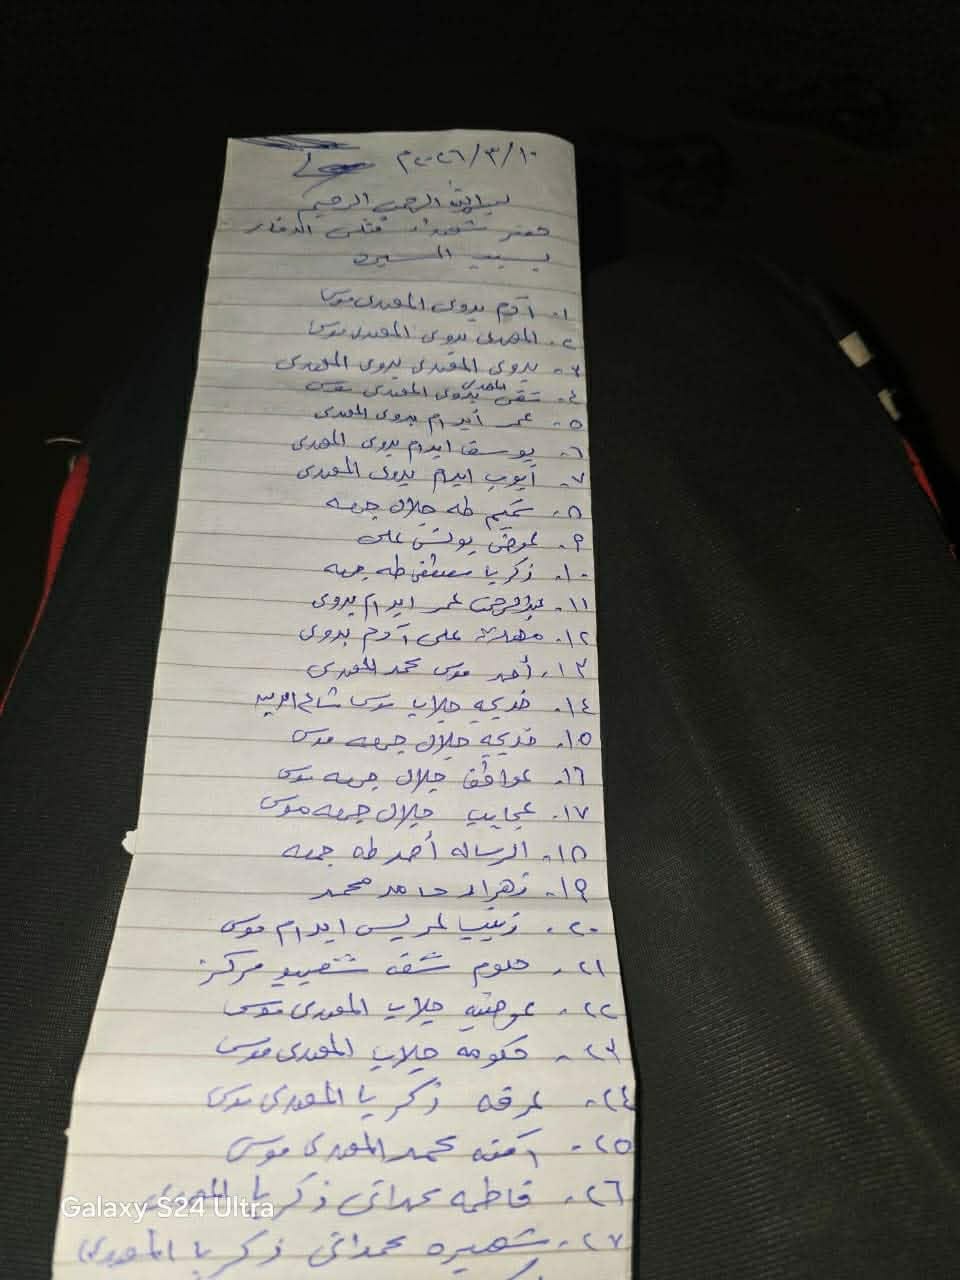 ١٠/٣/٢٠٢٦م
بسم الله الرحمن الرحيم
حصر شهداء قتلى الدفار
بسبب المسيره
١. آدم بدوى المهدى موسى
٢. المهدى بدوى المهدى موسى
٣. بدوى المهدى بدوى المهدى
٤. بدوى المهدى موسى
٥. عمر ايدام بدوى المهدى
٦. يوسف ايدام بدوى المهدى
٧. أيوب ايدام بدوى المهدى
٨. تميم طه جلال جمعه
٩. عوض يونس على
١٠. زكريا مصطفى طه جمعه
١١. عبدالرحمن عمر ايدام بدوى
١٢. على آدم بدوى
١٣. أحمد موسى محمد المهدى
١٤. خديجه جلاب موسى
١٥. خديجه جلال جمعه موسى
١٦. عواطف جلال جمعه موسى
١٧. عجايب جلال جمعه موسى
١٨. الرساله أحمد طه جمعه
١٩. زهراء حامد محمد
٢٠. ايدام موسى
٢١. حلوم مركز
٢٢. عوضيه جلاب المهدى موسى
٢٣. حكومه جلاب المهدى موسى
٢٤. عرفه زكريا المهدى موسى
٢٥. آمنه محمد المهدى موسى
٢٦. فاطمه حمدانى زكريا المهدى
٢٧. شهيره حمدانى زكريا المهدى
Galaxy S24 Ultra